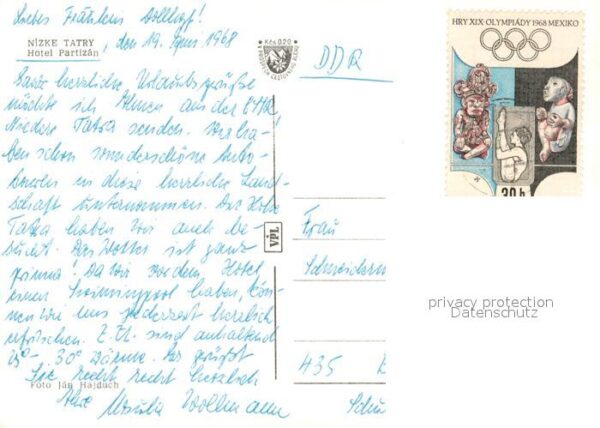 Liebes Fräulein Dollhopf!
NÍZKE TATRY
Hotel Partizán, den 19. Juni 1968
Ganz herzliche Urlaubsgrüße
möchte ich Ihnen aus der
Niedere Tatra senden. Wir ha-
ben schon wunderschöne Auto-
touren in diese herrliche Land-
schaft unternommen. Die Hohe
Tatra haben wir auch be-
sucht. Das Wetter ist ganz
prima! Da wir vor dem Hotel
einen Swimmingpool haben, kön-
nen wir uns jederzeit herrlich
erfrischen. Z. Zt. sind anhaltend
25°- 30° Wärme. Es grüßt
Sie recht recht herzlich
Foto Ján Hajdúch
Ihre Ursula
Kčs 0,20
DDR
VPL
Frau
435
HRY XIX OLYMPIÁDY 1968 MEXIKO
30 h
privacy protection
Datenschutz